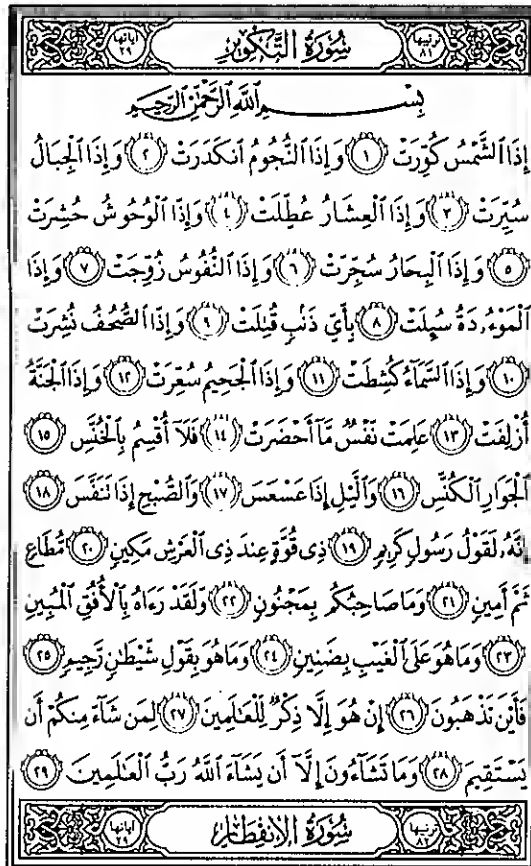 ترتيبها ٨١ سُورَةُ التَّكْوِيرِ آياتها ٢٩
بِسْمِ ٱللَّهِ ٱلرَّحْمَٰنِ ٱلرَّحِيمِ
إِذَا ٱلشَّمْسُ كُوِّرَتْ ١ وَإِذَا ٱلنُّجُومُ ٱنكَدَرَتْ ٢ وَإِذَا ٱلْجِبَالُ
سُيِّرَتْ ٣ وَإِذَا ٱلْعِشَارُ عُطِّلَتْ ٤ وَإِذَا ٱلْوُحُوشُ حُشِرَتْ
٥ وَإِذَا ٱلْبِحَارُ سُجِّرَتْ ٦ وَإِذَا ٱلنُّفُوسُ زُوِّجَتْ ٧ وَإِذَا
ٱلْمَوْءُۥدَةُ سُئِلَتْ ٨ بِأَىِّ ذَنۢبٍ قُتِلَتْ ٩ وَإِذَا ٱلصُّحُفُ نُشِرَتْ
١٠ وَإِذَا ٱلسَّمَآءُ كُشِطَتْ ١١ وَإِذَا ٱلْجَحِيمُ سُعِّرَتْ ١٢ وَإِذَا ٱلْجَنَّةُ
أُزْلِفَتْ ١٣ عَلِمَتْ نَفْسٌ مَّآ أَحْضَرَتْ ١٤ فَلَآ أُقْسِمُ بِٱلْخُنَّسِ ١٥
ٱلْجَوَارِ ٱلْكُنَّسِ ١٦ وَٱلَّيْلِ إِذَا عَسْعَسَ ١٧ وَٱلصُّبْحِ إِذَا تَنَفَّسَ ١٨
إِنَّهُۥ لَقَوْلُ رَسُولٍ كَرِيمٍ ١٩ ذِى قُوَّةٍ عِندَ ذِى ٱلْعَرْشِ مَكِينٍ ٢٠ مُّطَاعٍ
ثَمَّ أَمِينٍ ٢١ وَمَا صَاحِبُكُم بِمَجْنُونٍ ٢٢ وَلَقَدْ رَءَاهُ بِٱلْأُفُقِ ٱلْمُبِينِ
٢٣ وَمَا هُوَ عَلَى ٱلْغَيْبِ بِضَنِينٍ ٢٤ وَمَا هُوَ بِقَوْلِ شَيْطَٰنٍ رَّجِيمٍ ٢٥
فَأَيْنَ تَذْهَبُونَ ٢٦ إِنْ هُوَ إِلَّا ذِكْرٌ لِّلْعَٰلَمِينَ ٢٧ لِمَن شَآءَ مِنكُمْ أَن
يَسْتَقِيمَ ٢٨ وَمَا تَشَآءُونَ إِلَّآ أَن يَشَآءَ ٱللَّهُ رَبُّ ٱلْعَٰلَمِينَ ٢٩
ترتيبها ٨٢ سُورَةُ الانفِطَارِ آياتها